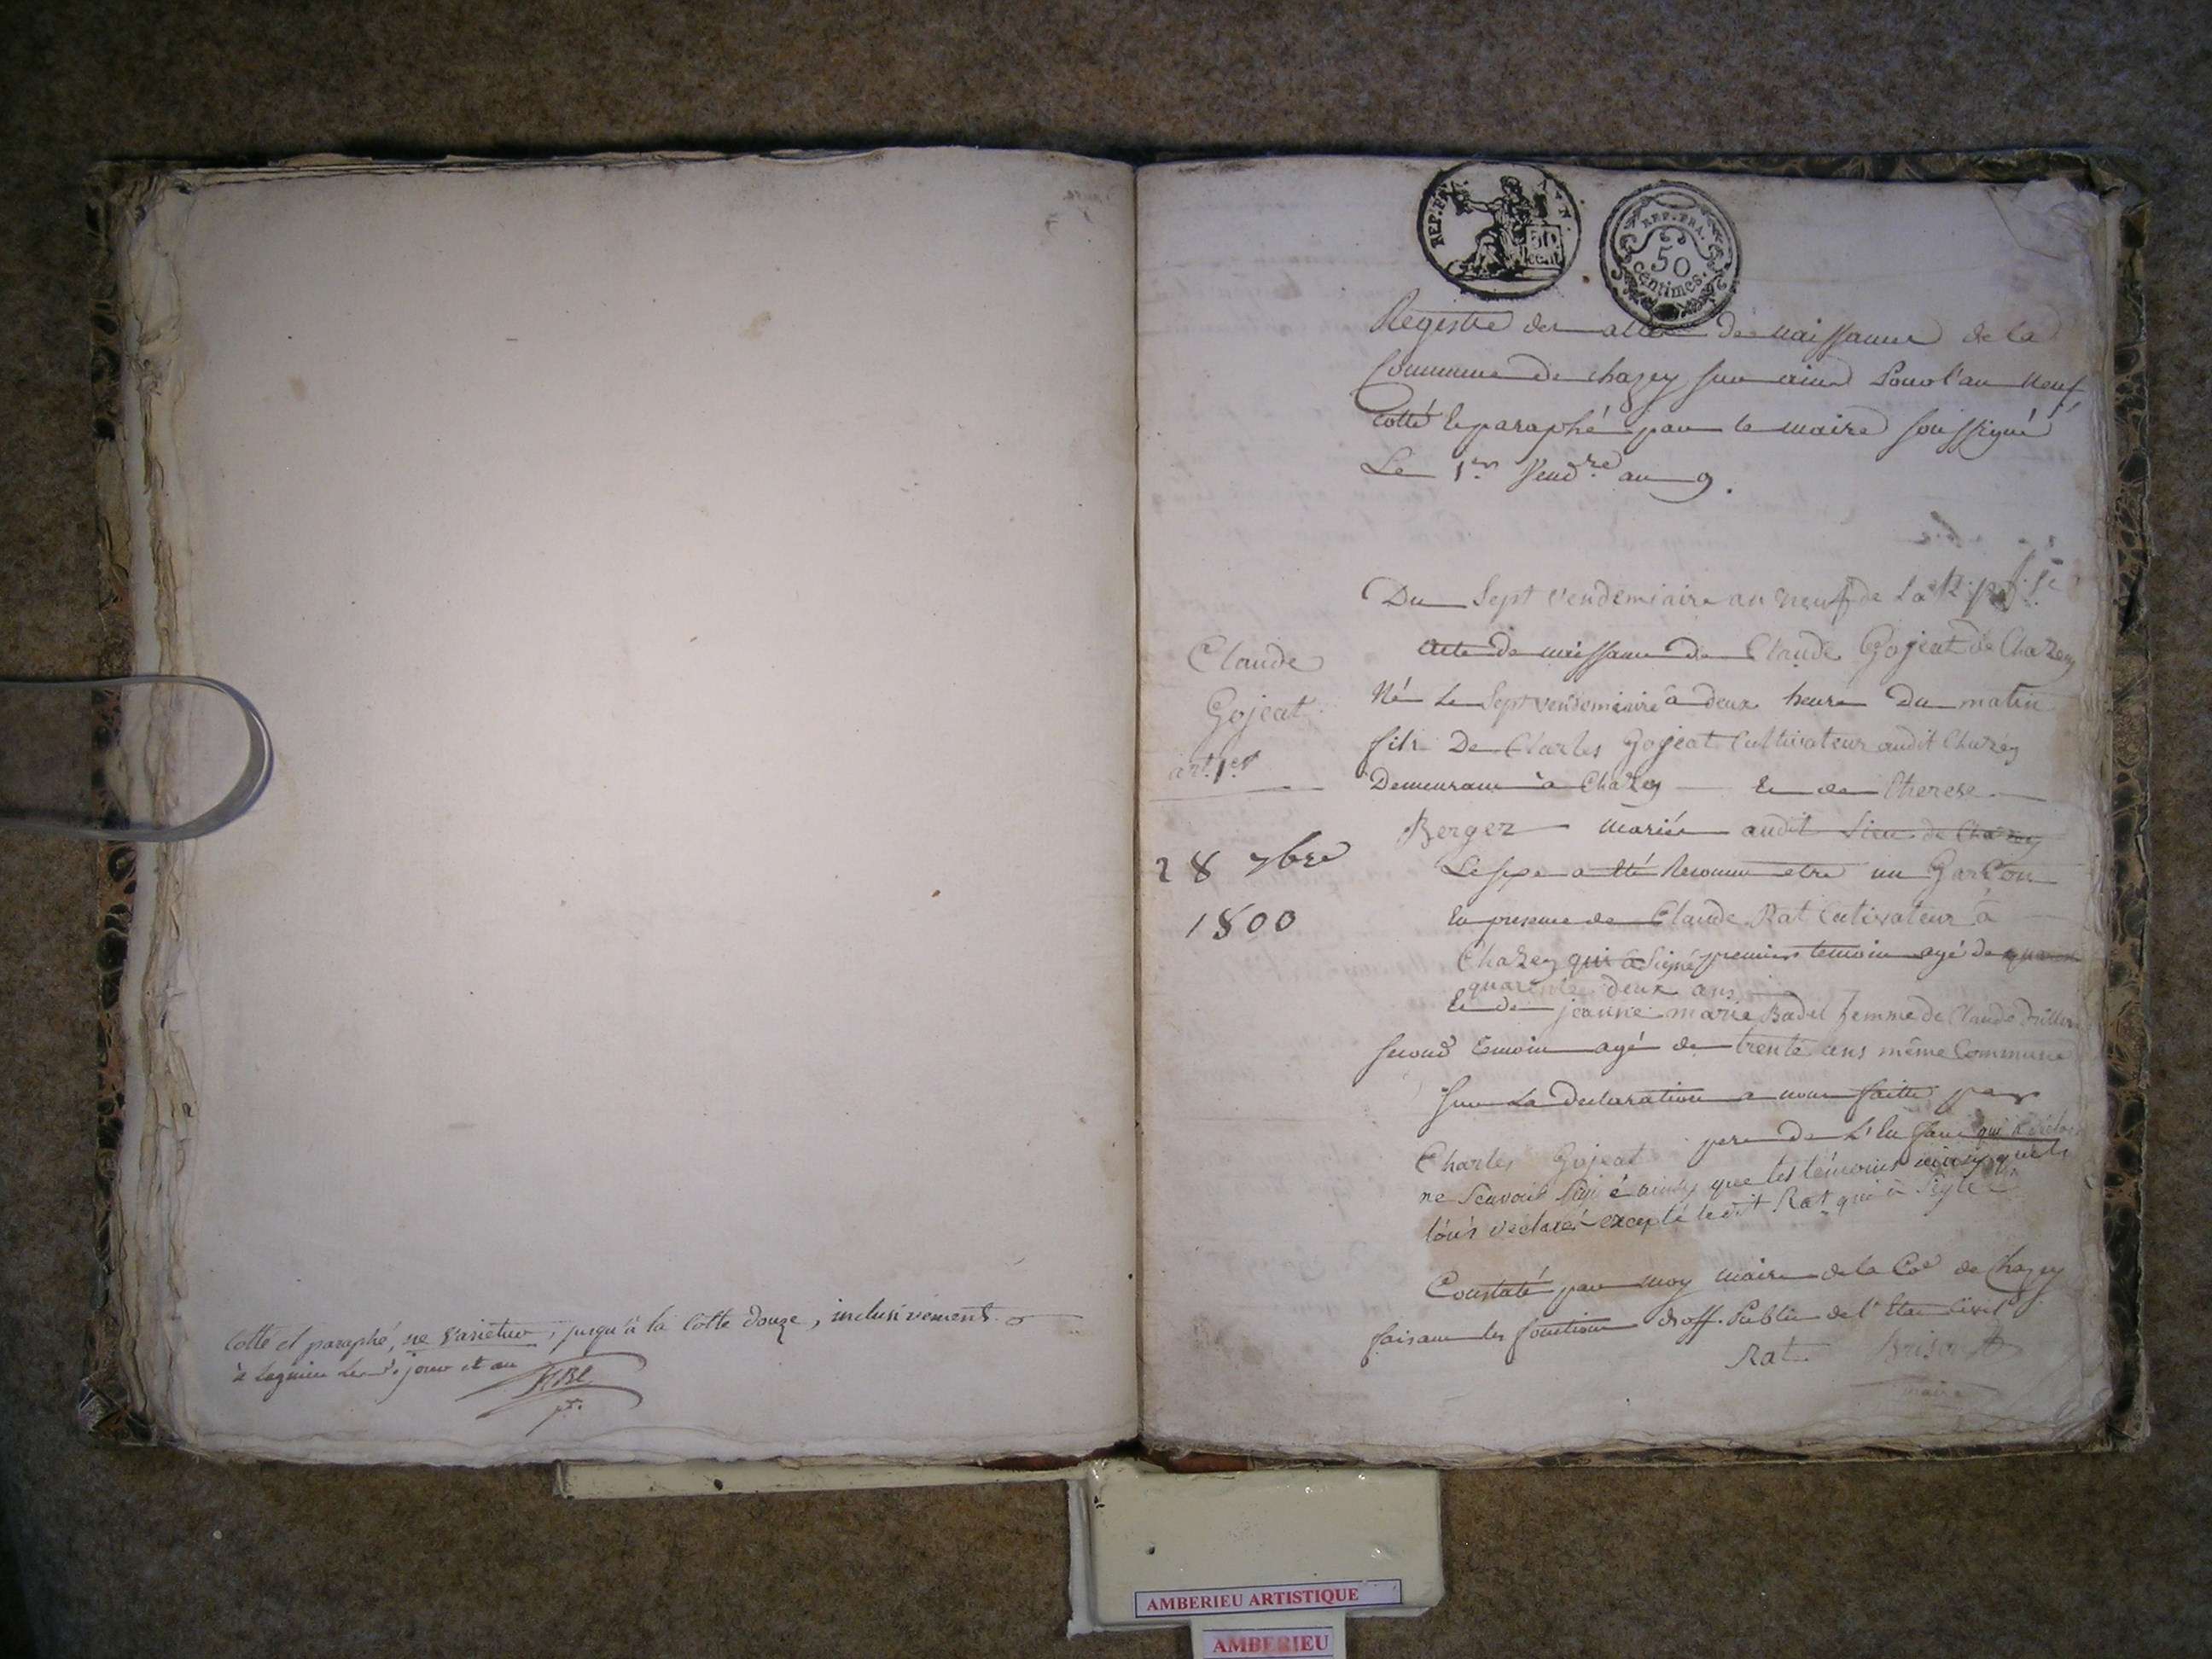 Cotté et paraphé, ne varietur, jusqu'à la Cotte douze, inclusivement
à lagnieu les d. jour et an
REP. FRA.
50
cent.
REP. FRA.
50
centimes.
Registre des actes de naissances de la
Commune de chazey sur ain Pour l'an neuf
cotté et paraphé par le maire soussigné
Le 1er Vendre an 9.
Du Sept vendemiaire an neuf de La
Claude
Gojeat
art. 1er
28 7bre
1800
Acte de naissance de Claude Gojeat de Chazey
Né le Sept vendemiaire à deux heures Du matin
fils De Charles Gojeat Cultivateur audit Chazey
Demeurant à Chazey Et de Therese
Berger mariés audit Lieu de Chazey
Le sexe a été Reconnu etre un Garcon
En presence de Claude Rat Cultivateur à
Chazey qui a Signé premier temoin agé de
quarente deux ans
Et de jeanne marie Badel femme de Claude
second temoin agé de trente ans même Commune
sur La declaration a nous faitte par
Charles Gojeat pere de L'Enfant qui a
ne Scavoir Signé ainsy que les témoins ainsy qu'ils
tous declaré excepté ledit Rat qui a
Constaté par moy maire de la Coe de Chazey
faisant les fonctions d'off. Public de l'Etat civil
Rat
maire
AMBERIEU ARTISTIQUE
AMBERIEU